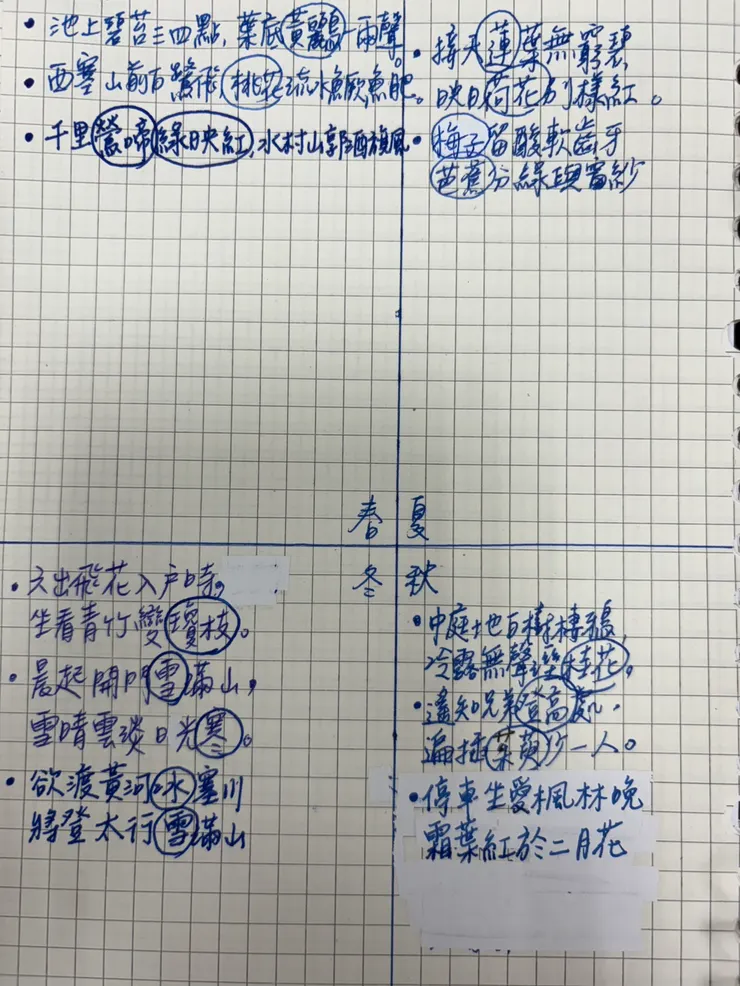 池上碧苔三四點,葉底黃鸝一兩聲。
西塞山前白鷺飛,桃花流水鱖魚肥。
千里鶯啼綠映紅,水村山郭酒旗風
接天蓮葉無窮碧
映日荷花別樣紅。
梅子留酸軟齒牙
芭蕉分綠與窗紗
春 夏
冬 秋
六出飛花入戶時,
坐看青竹變瓊枝。
晨起開門雪滿山,
雪晴雲淡日光寒。
欲渡黃河冰塞川
將登太行雪滿山
中庭地白樹棲鴉,
冷露無聲濕桂花,
遙知兄弟登高處,
遍插茱萸少一人。
停車坐愛楓林晚
霜葉紅於二月花